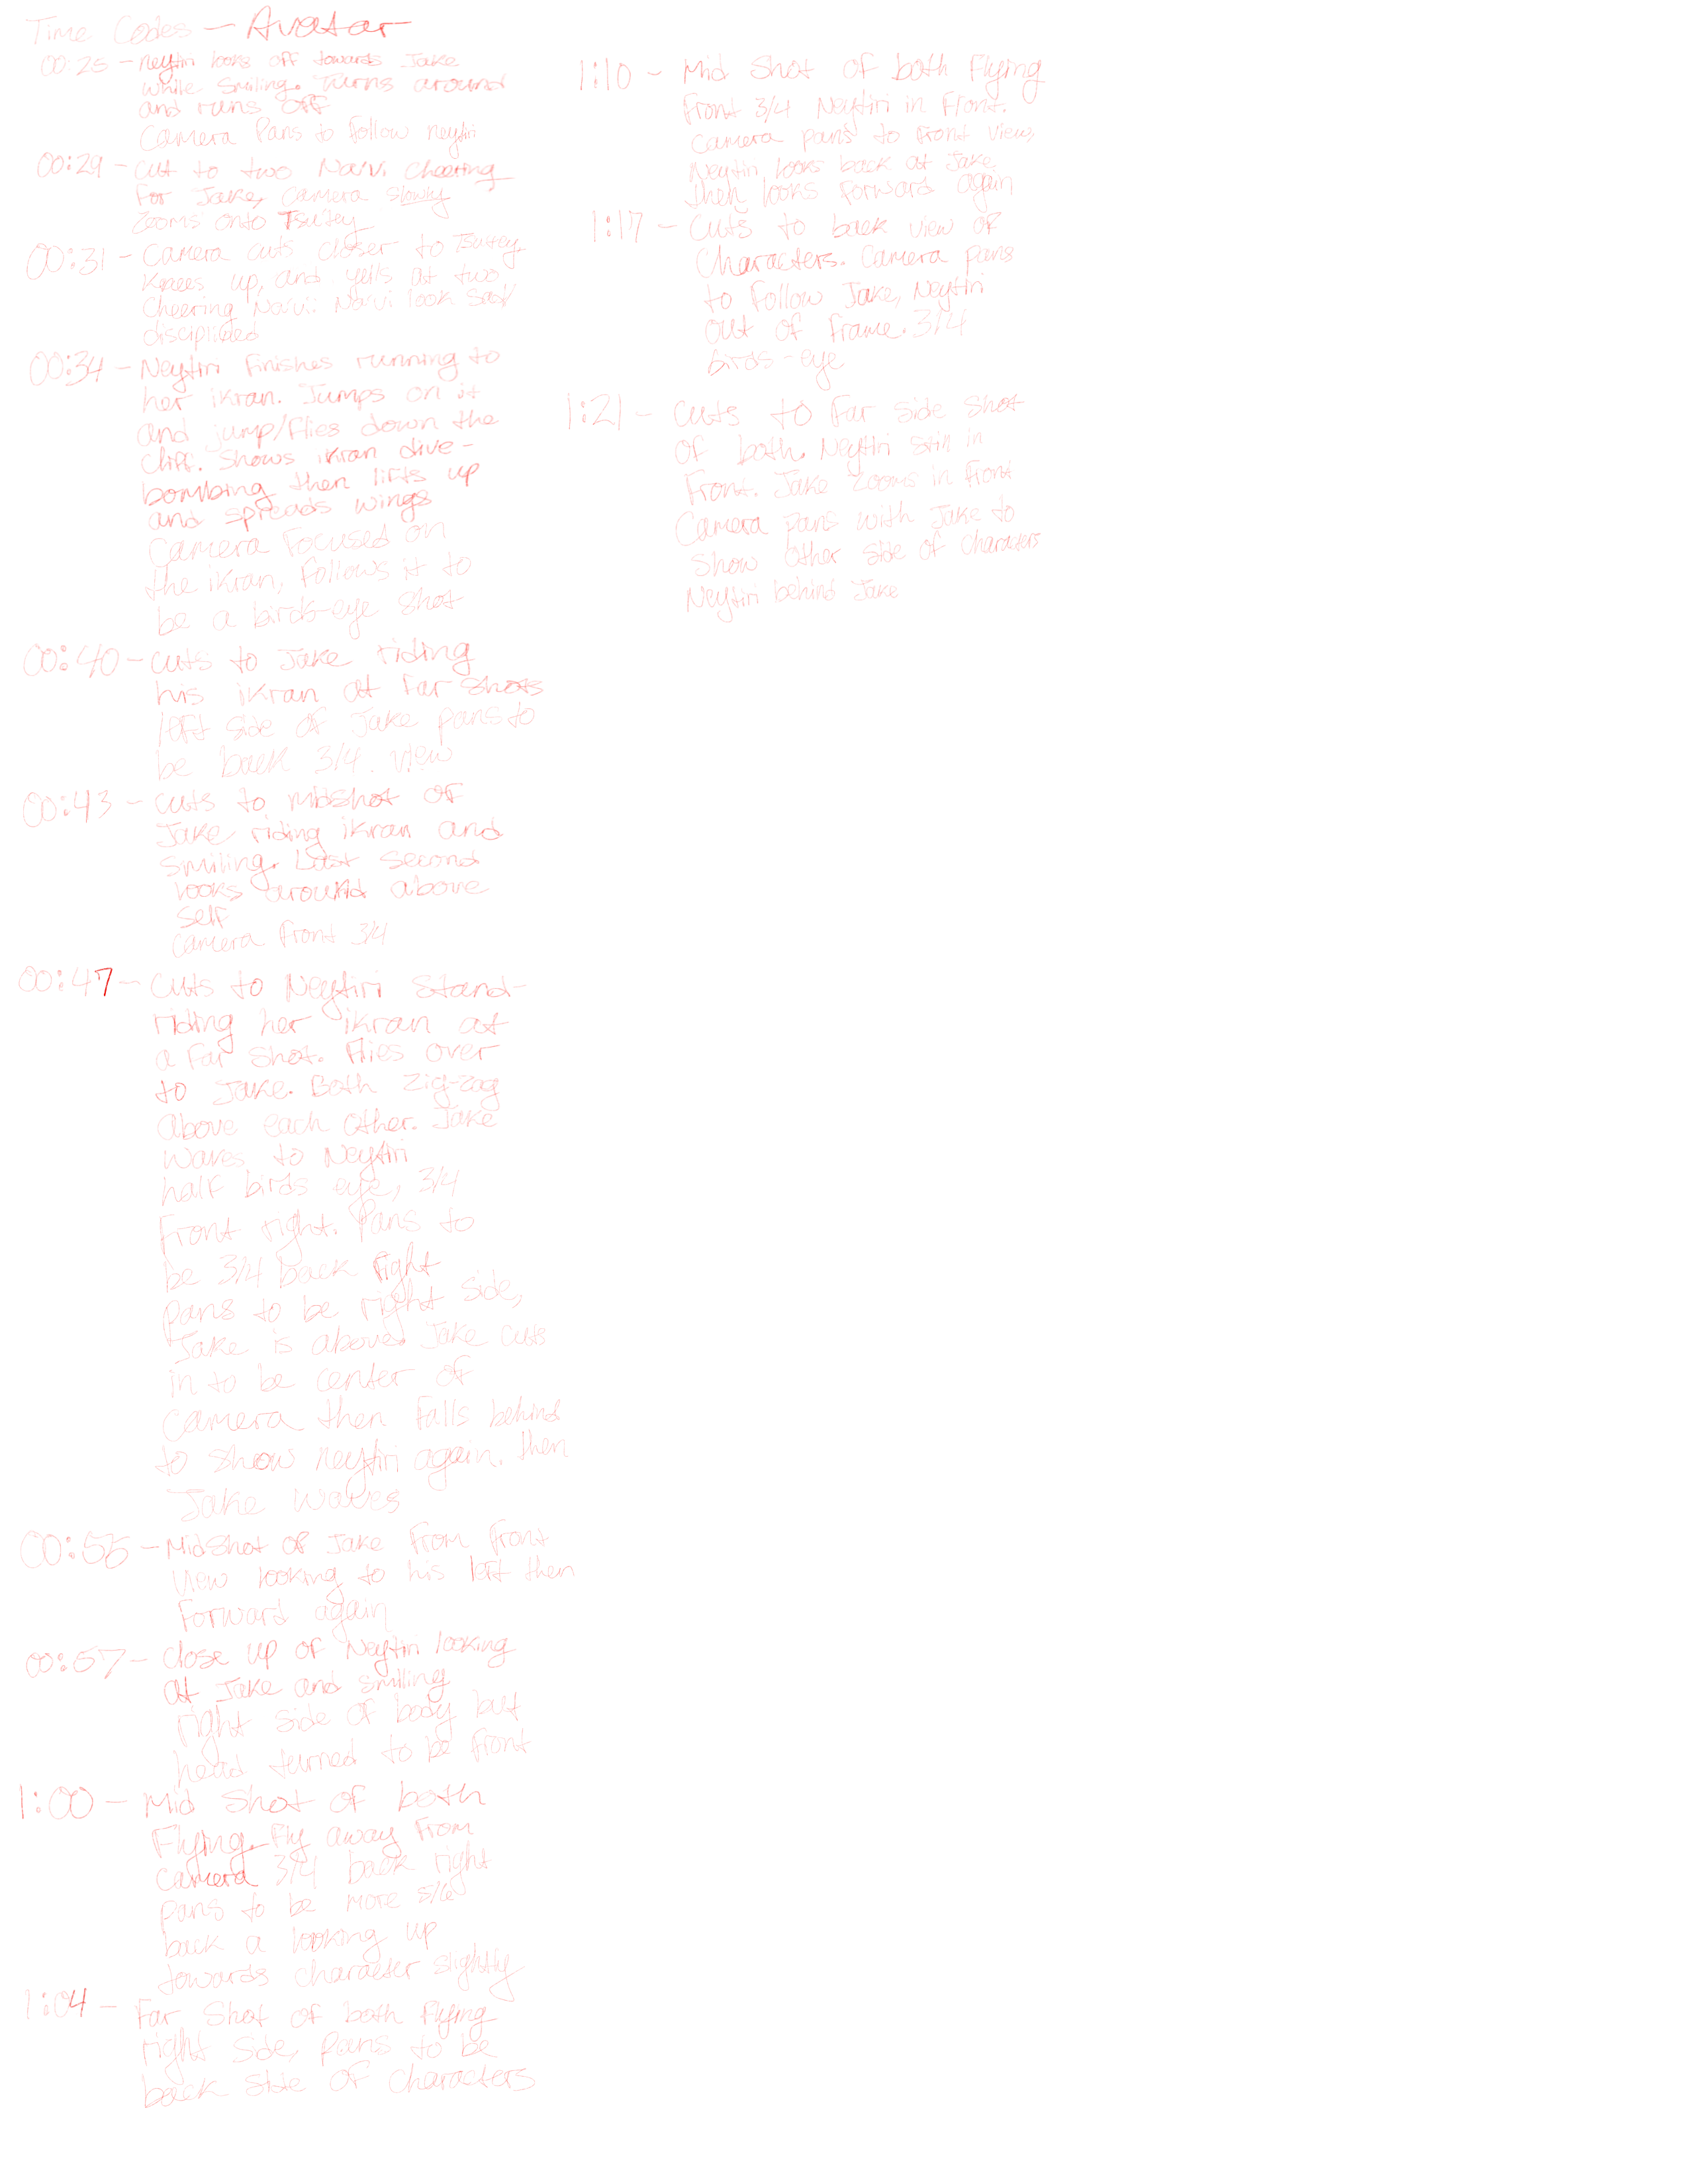 Time Codes - Avatar
00:25 - neytiri looks off towards Jake
while smiling. Turns around
and runs off
Camera Pans to follow neytiri
00:29 - cut to two Na'vi cheering
for Jake, camera slowly
zooms onto Tsutey
00:31 - Camera cuts closer to Tsutey.
Knees up, and yells at two
cheering Na'vi. Na'vi look sad/
disciplined
00:34 - Neytiri finishes running to
her ikran. Jumps on it
and jump/flies down the
cliff. Shows ikran dive-
bombing then lifts up
and spreads wings
Camera focused on
the ikran, follows it to
be a birds-eye shot
00:40 - cuts to Jake riding
his ikran at far shots
left side of Jake pans to
be back 3/4 view
00:43 - cuts to midshot of
Jake riding ikran and
smiling. Last second
looks around above
self
camera front 3/4
00:47 - cuts to Neytiri stand-
riding her ikran at
a far shot. Flies over
to Jake. Both zig-zag
above each other. Jake
waves to Neytiri
half birds eye, 3/4
front right. Pans to
be 3/4 back right
pans to be right side,
Jake is above. Jake cuts
in to be center of
camera then falls behind
to show neytiri again. then
Jake waves
00:55 - Midshot of Jake from front
view looking to his left then
forward again
00:57 - close up of Neytiri looking
at Jake and smiling
right side of body but
head turned to be front
1:00 - Mid shot of both
Flying. Fly away from
camera 3/4 back right
pans to be more
back a looking up
towards character slightly
1:04 - Far shot of both flying
right side, pans to be
back side of characters
1:10 - Mid shot of both Flying
front 3/4 Neytiri in front.
camera pans to front view,
Neytiri looks back at Jake
then looks forward again
1:17 - Cuts to back view of
characters. Camera pans
to follow Jake, Neytiri
out of frame. 3/4
birds-eye
1:21 - cuts to far side shot
of both. Neytiri still in
front. Jake zooms in front
Camera pans with Jake to
show other side of characters
Neytiri behind Jake